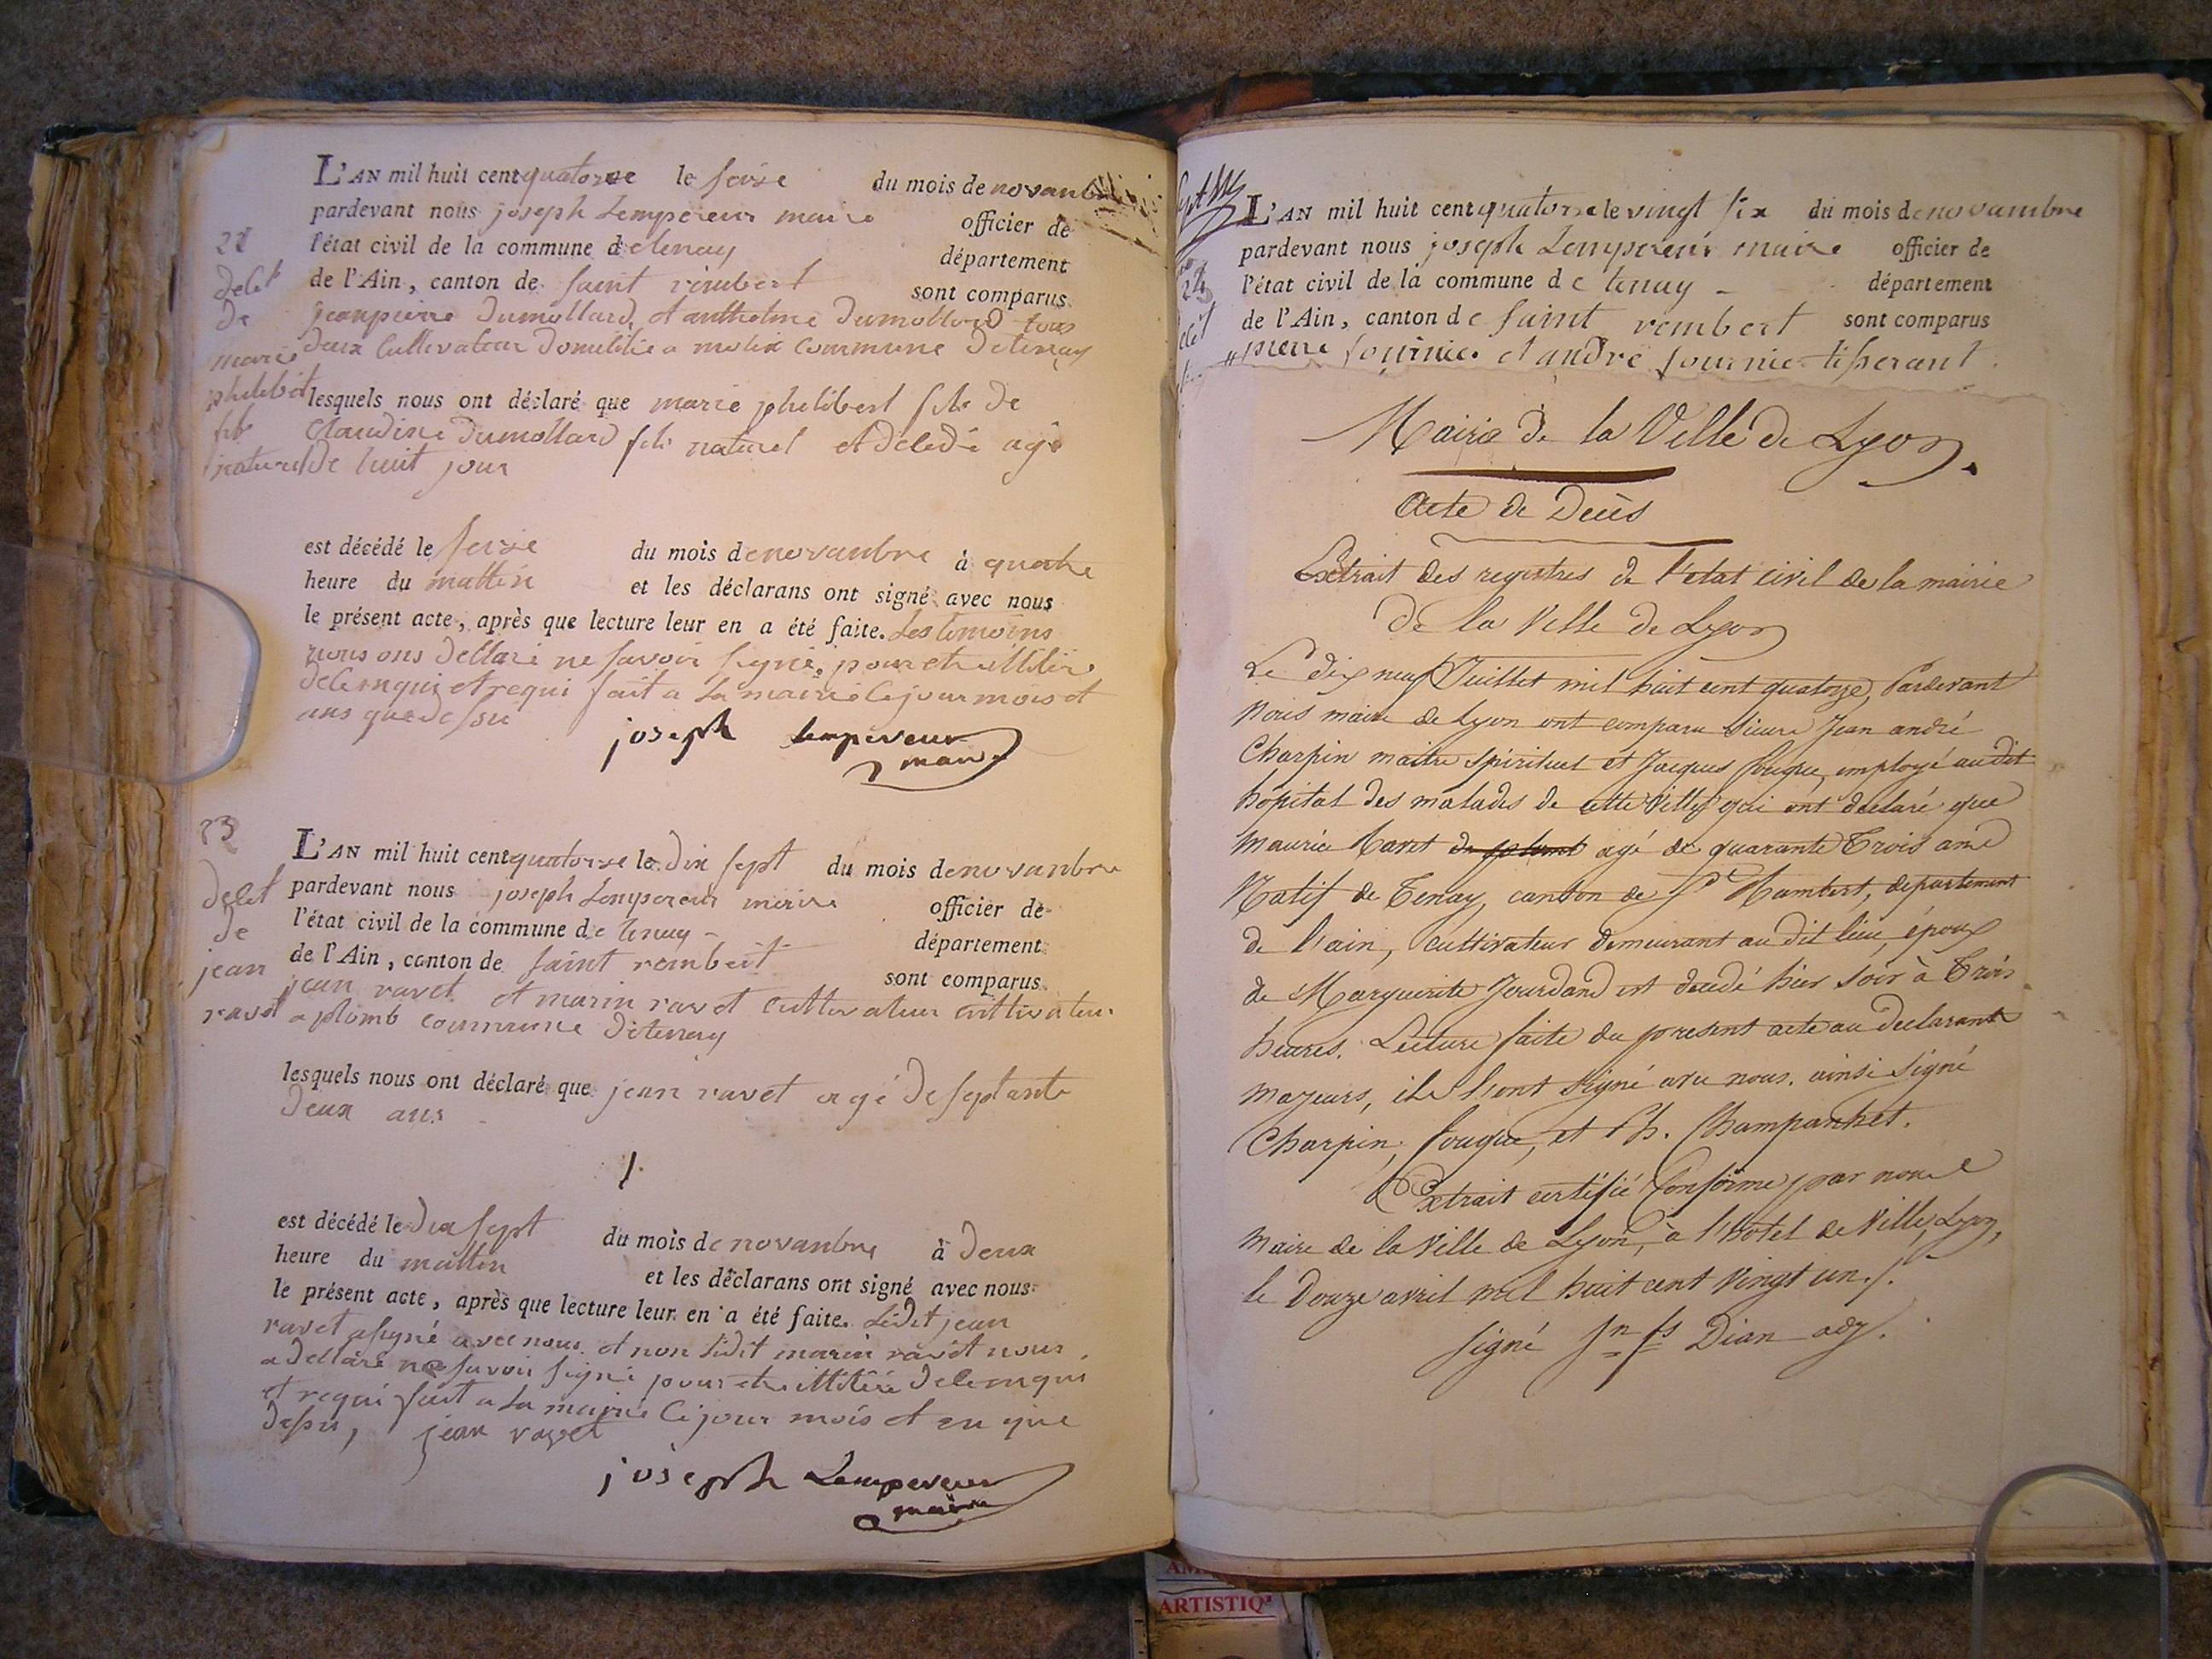 L'AN mil huit cent quatorze le seize du mois de novanbre
pardevant nous joseph Lempereur maire officier de
22 l'état civil de la commune de tenay département
de l'Ain, canton de saint rembert sont comparus
jeanpierre Dumollard et anthelme Dumollard tous
deux Cultivateur Domicilié a molix commune De tenay
decet
De
marie
philibert
fils
naturel
lesquels nous ont déclaré que marie philibert fils De
Claudine Dumollard fils naturel et décédé agé
De huit jour
est décédé le seize du mois de novanbre à quatre
heure du mattin et les déclarans ont signé avec nous
le présent acte, après que lecture leur en a été faite. Les temoins
nous ons Dellaré ne savoir signé, pour etre illitéré
De ce enquis et requi fait a La mairie Ce jour mois et
ans que de ssu
joseph Lempereur
maire
23
L'AN mil huit cent quatorze le dix sept du mois de novanbre
pardevant nous joseph Lempereur maire officier de
l'état civil de la commune de tenay - département
de l'Ain, canton de saint rembert sont comparus
jean ravet et marin ravet cultivateur cultivateur
a plomb commune De tenay
decet
de
jean
ravet
lesquels nous ont déclaré que jean ravet agé De septante
deux ans
est décédé le dix sept du mois de novanbre à deux
heure du mattin et les déclarans ont signé avec nous
le présent acte, après que lecture leur en a été faite. Ledit jean
ravet a signé avec nous et non Ledit marin ravet nous
a Dellaré ne savoir signé pour etre illitéré De ce enquis
et requi fait a La mairie Ce jour mois et an que
Dessu, jean ravet
joseph Lempereur
maire
L'AN mil huit cent quatorze le vingt six du mois de novambre
pardevant nous joseph Lempereur maire officier de
24 l'état civil de la commune de tenay - département
de l'Ain, canton de saint rembert sont comparus
pierre fournier et andré fournier tisserant
Mairie de la Ville de Lyon.
Acte de Décès
Extrait des registres de l'état civil de la mairie
De la Ville de Lyon
Le dix neuf Juillet mil huit cent quatorze, Pardevant
Nous maire de Lyon ont comparu Sieurs Jean andré
Charpin maitre spirituel et Jacques fouque, employé au dit
hôpital des malades de cette Ville, qui ont déclaré que
Maurice agé de quarante Trois ans
Natif de Tenay, canton de St Rambert, département
de l'ain, cultivateur demeurant au dit lieu, époux
de Marguerite Jourdand est décédé hier soir à Trois
heures. Lecture faite du present acte au déclarants
majeurs, ils l'ont signé avec nous. ainsi signé
Charpin, fouque, et Ch. Champanhet.
Extrait certifié Conforme par nous
Maire de la Ville de Lyon, à l'hôtel de Ville, Lyon,
le Douze avril mil huit cent Vingt un./.
Signé Jn fs Dian adj.
ARTISTIQ